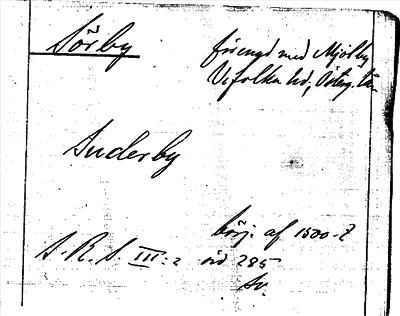 Sörby
förenad med Mjölby
Vifolka hd, Österg. län
Suderby
börj. af 1500-t
S. R. S. III:2 sid 285
Sv.